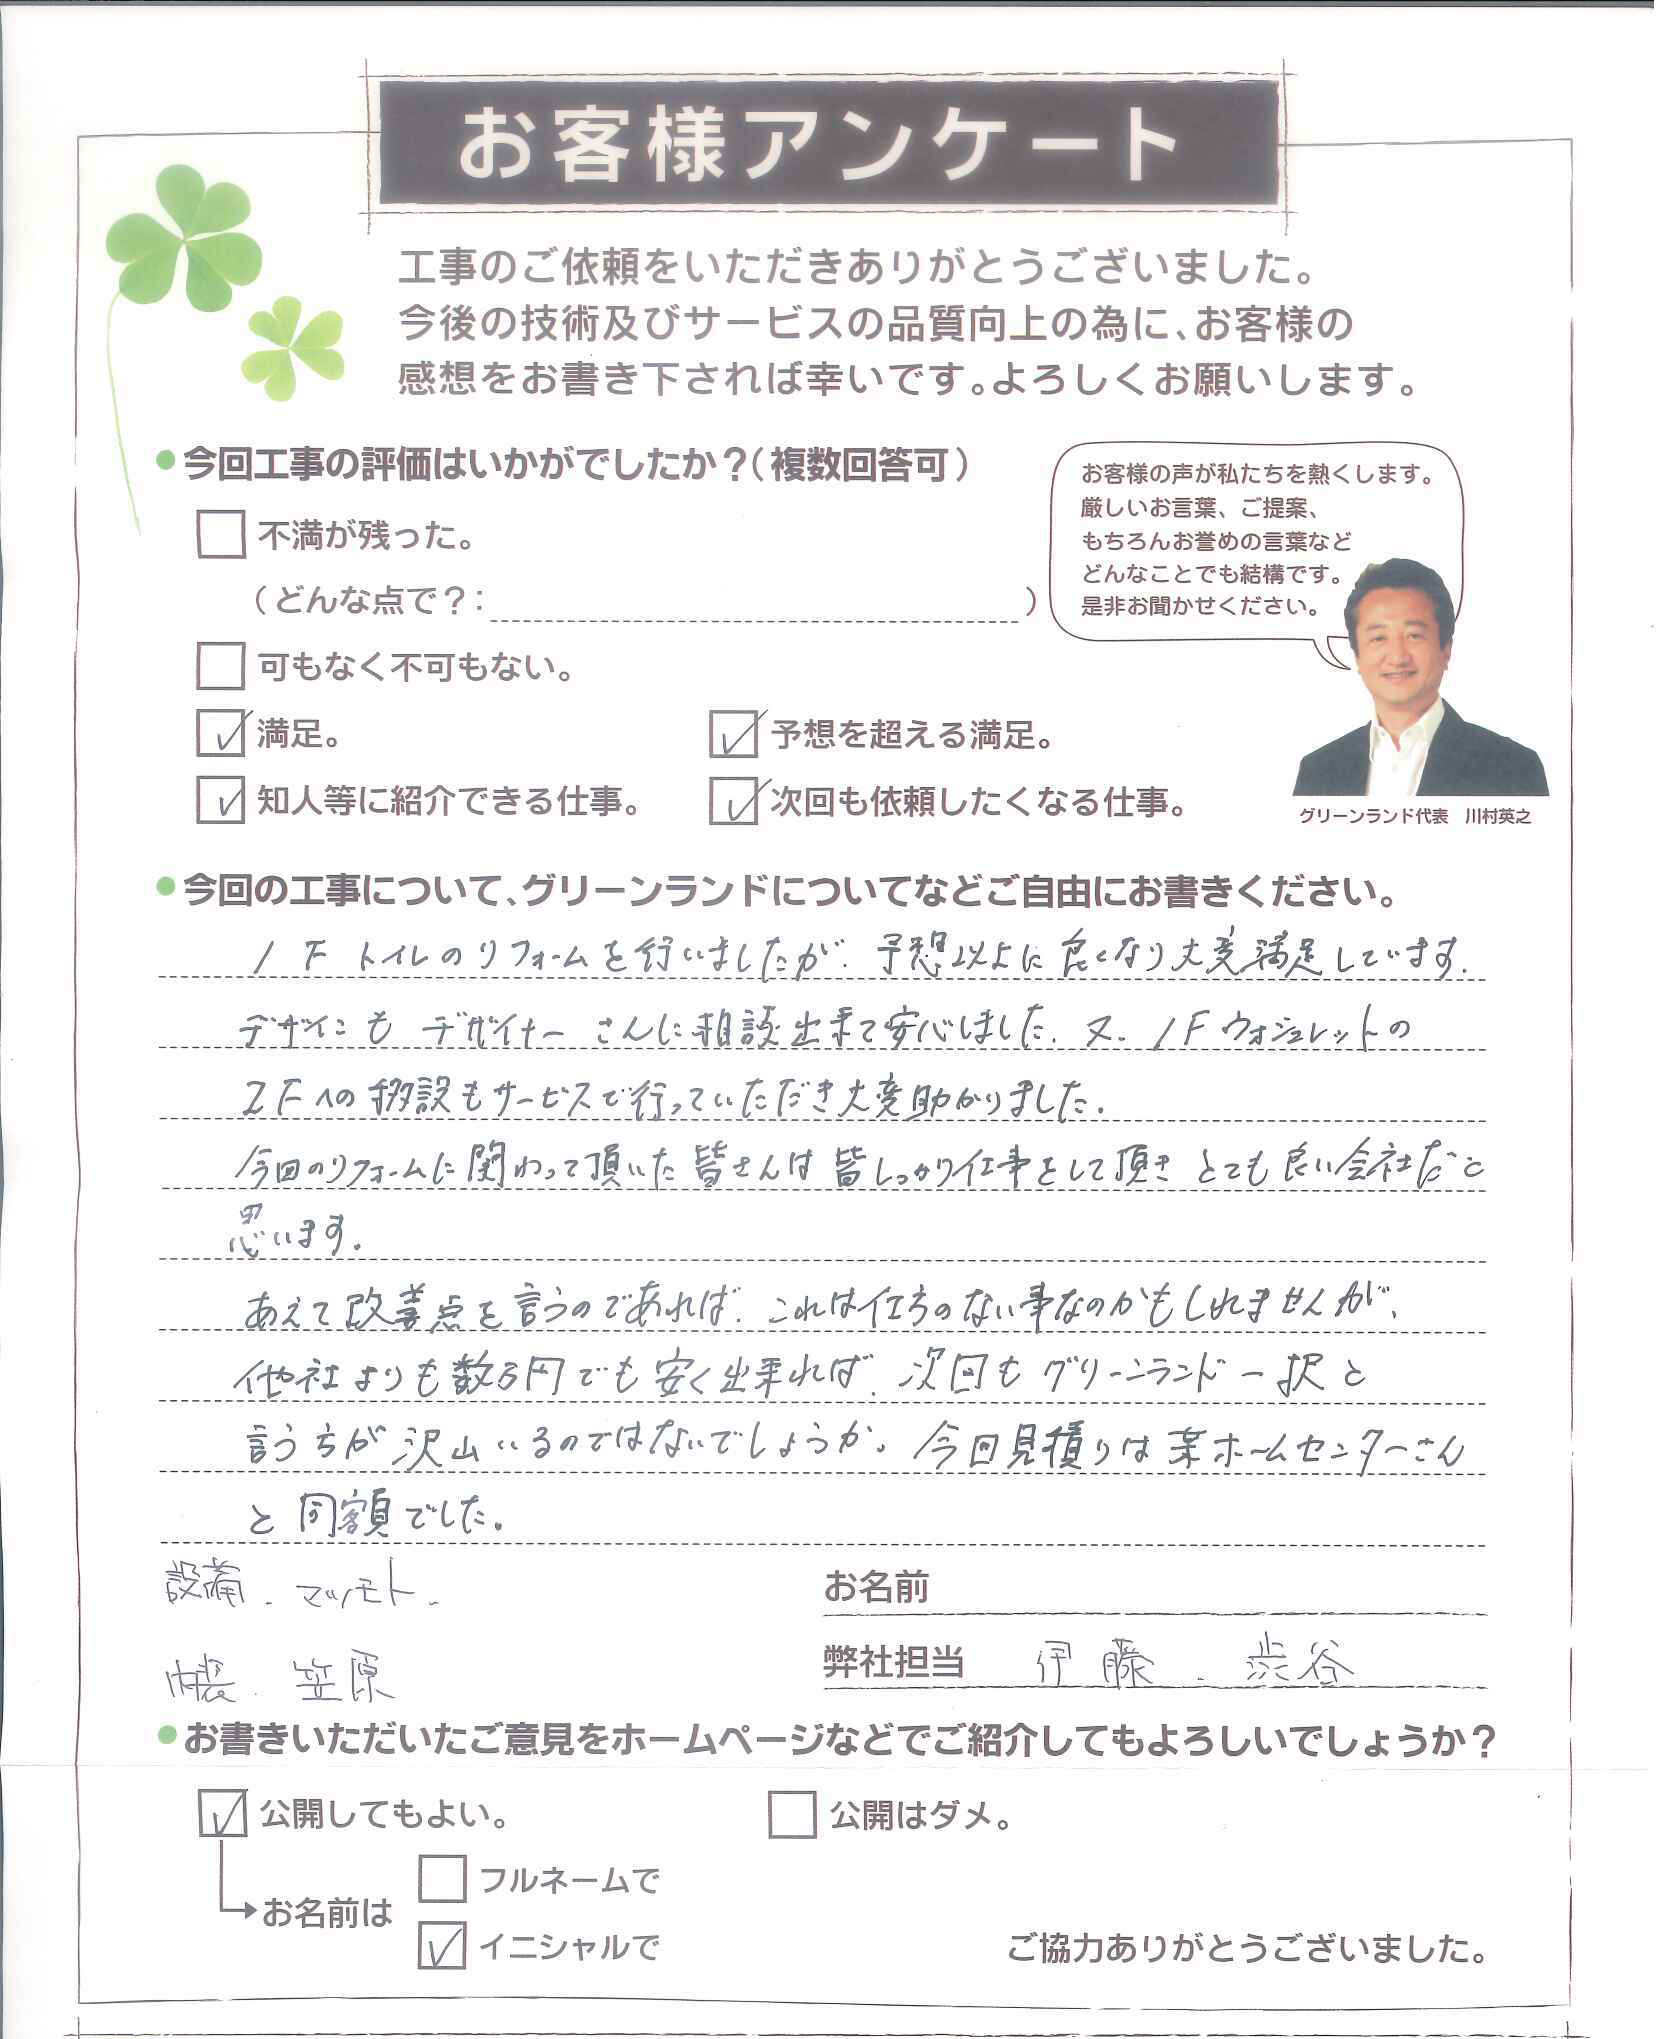 お客様アンケート
工事のご依頼をいただきありがとうございました。
今後の技術及びサービスの品質向上の為に、お客様の
感想をお書き下されば幸いです。よろしくお願いします。
●今回工事の評価はいかがでしたか？（複数回答可）
お客様の声が私たちを熱くします。
厳しいお言葉、ご提案、
もちろんお誉めの言葉など
どんなことでも結構です。
是非お聞かせください。
不満が残った。
（どんな点で？：　）
可もなく不可もない。
満足。　予想を超える満足。
知人等に紹介できる仕事。　次回も依頼したくなる仕事。
グリーンランド代表　川村英之
●今回の工事について、グリーンランドについてなどご自由にお書きください。
1Fトイレのリフォームを行いましたが、予想以上に良くなり大変満足しています。
デザインもデザイナーさんに相談出来て安心しました。又、1Fウォシュレットの
2Fへの移設もサービスで行っていただき大変助かりました。
今回のリフォームに関わって頂いた皆さんは皆しっかり仕事をして頂きとても良い会社だと
思います。
あえて改善点を言うのであれば、これは仕方のない事なのかもしれませんが、
他社よりも数万円でも安く出来れば、次回もグリーンランド一択と
言う方が沢山いるのではないでしょうか。今回見積りは某ホームセンターさん
と同額でした。
設備. マツモト.
お名前
内装. 笠原
弊社担当　伊藤. 渋谷
●お書きいただいたご意見をホームページなどでご紹介してもよろしいでしょうか？
公開してもよい。　公開はダメ。
お名前は
フルネームで
イニシャルで
ご協力ありがとうございました。